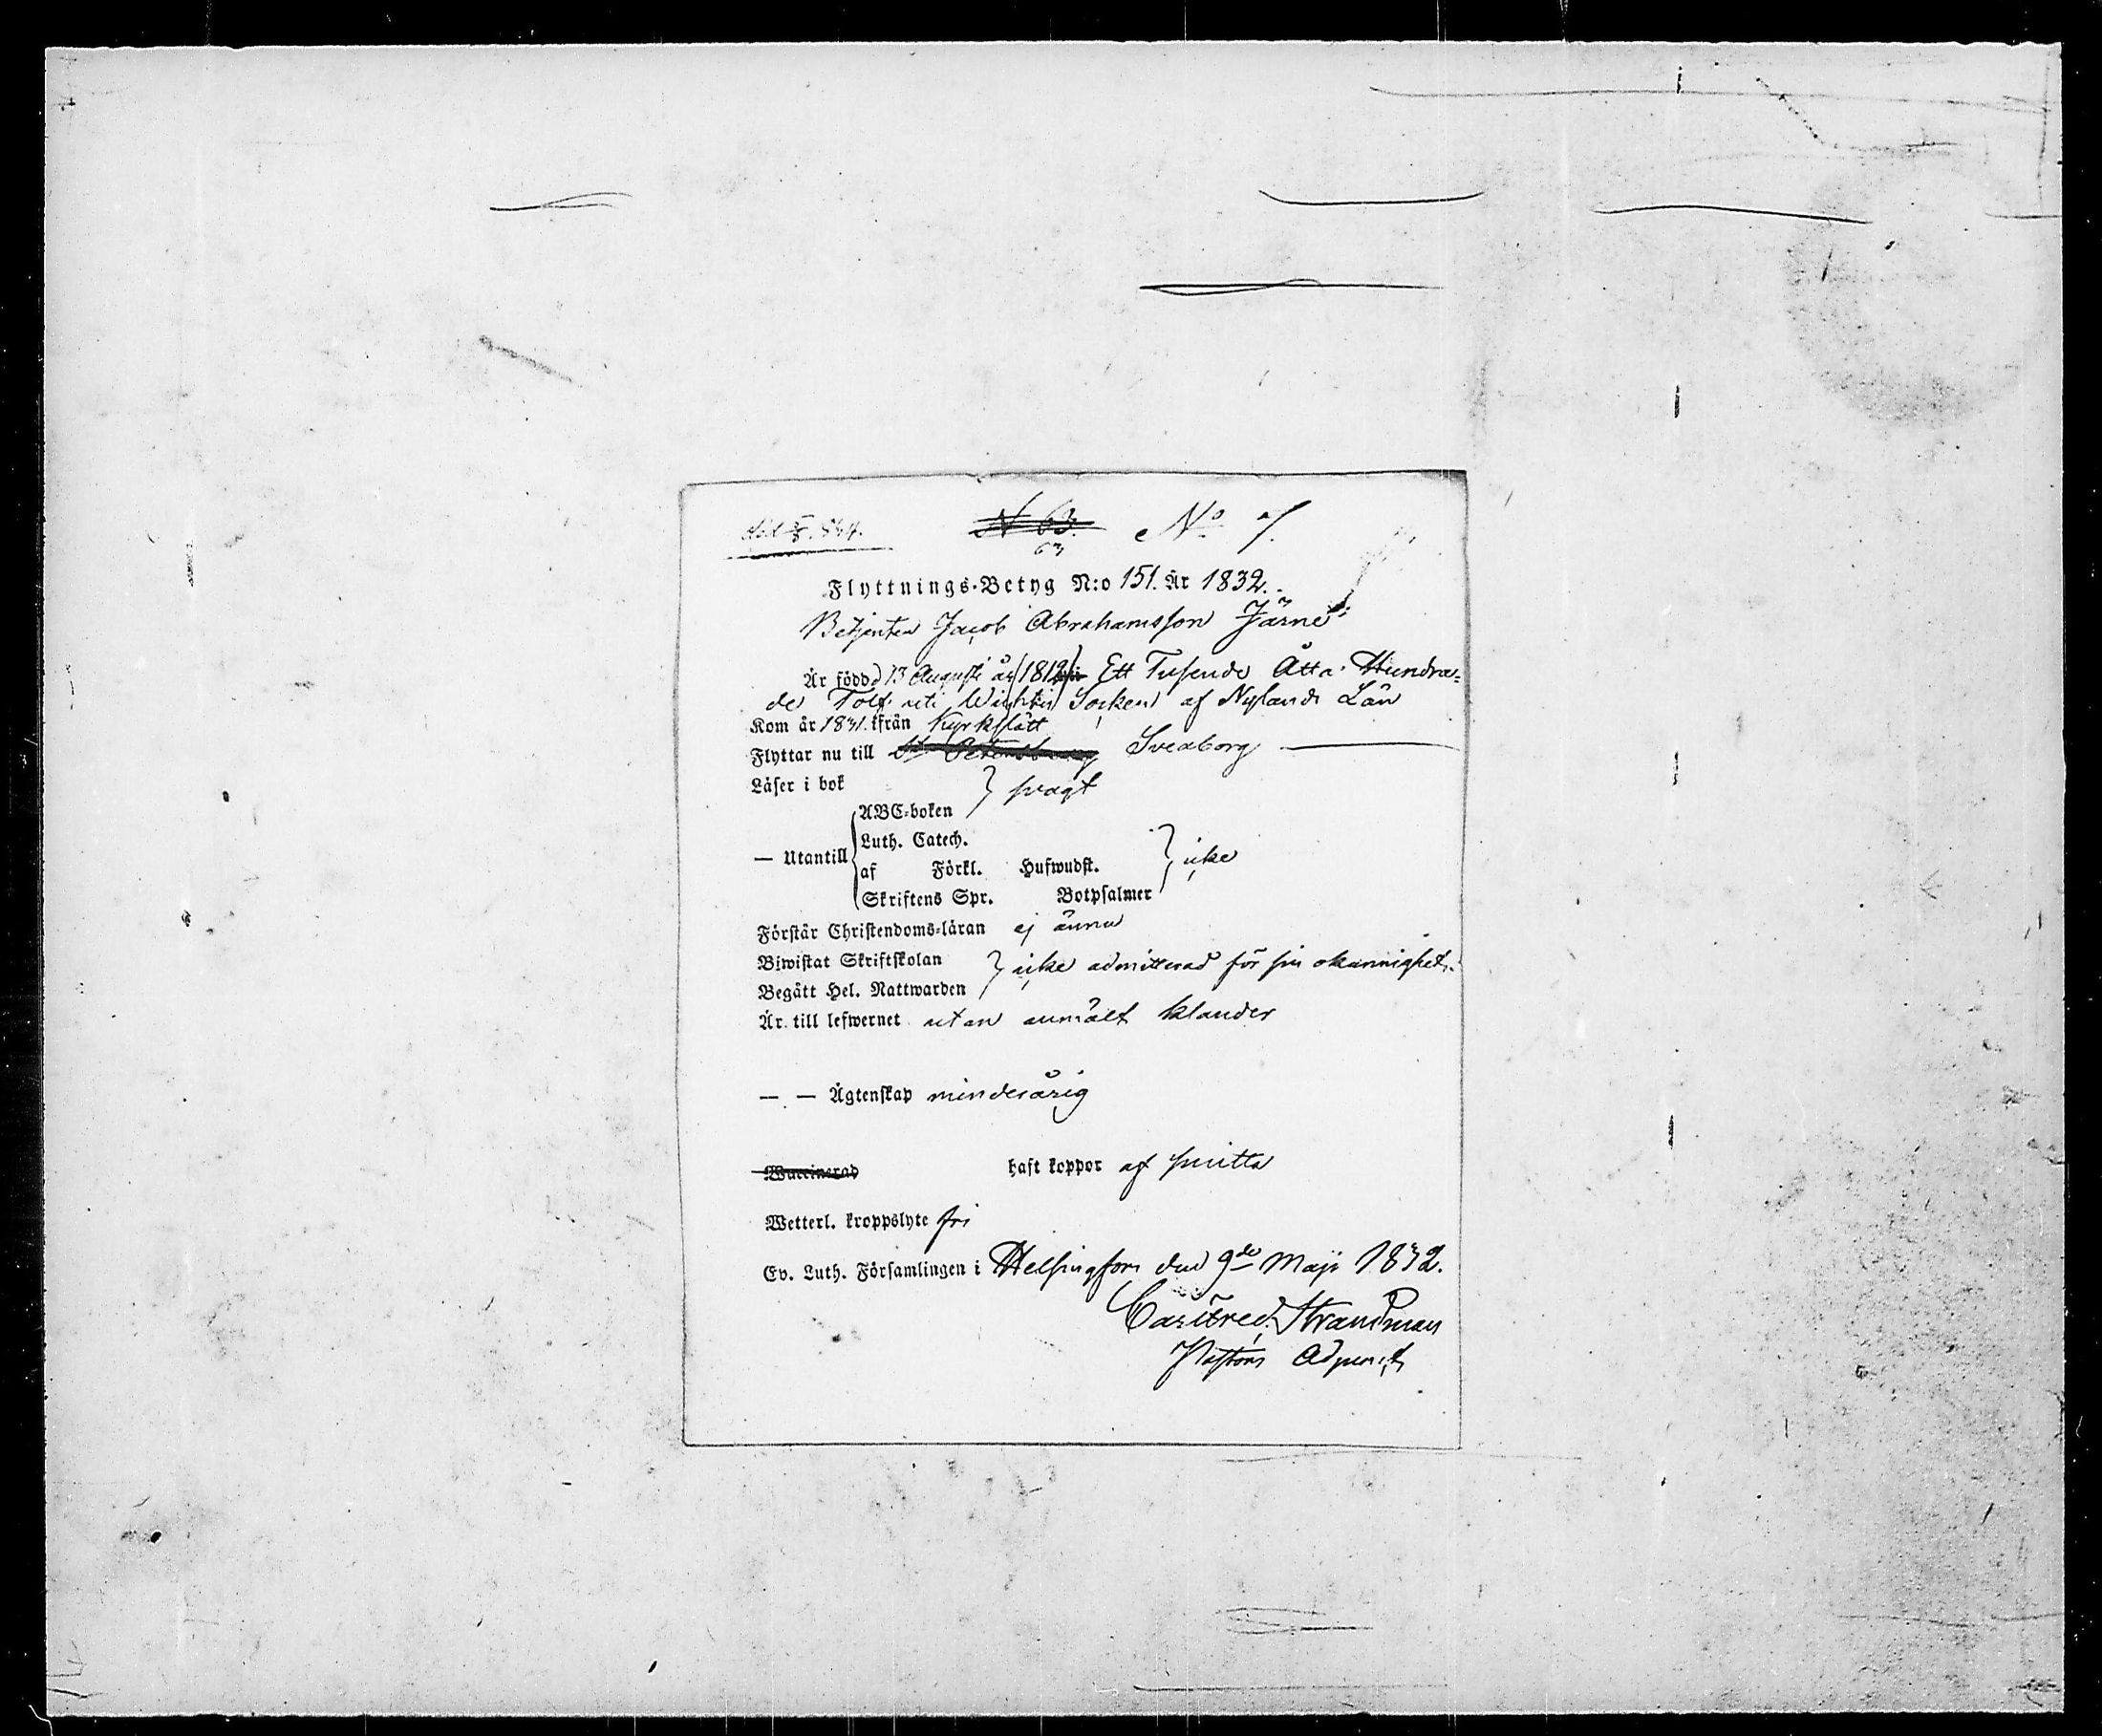 N 63. No 7.
63
Flyttnings-Betyg N:o 151. År 1832.
Betjenten Jacob Abrahamsson Järne
Är födde 13 Augusti år (1812) Ett Tusende Åtta Hundra-
de Tolf uti Wichtis Socken af Nylands Län
Kom år 1831. ifrån Kyrkslätt
Flyttar nu till St Petersburg Sveaborg
Läser i bok } svagt
ABC-boken
Luth. Catech.
— Utantill af Förkl. Hufwudst. } icke
Skriftens Spr. Botpsalmer
Förstår Christendoms-läran ej ännu
Biwistat Skriftskolan } icke admitterad för sin okunnighet.
Begått Hel. Nattwarden
Är till lefwernet utan anmält klander
— — Ägtenskap minderårig
Waccinerad haft koppor af smitta
Wetterl. kroppslyte fri
Ev. Luth. Församlingen i Helsingfors den 9de Maji 1832.
Strandman
Pastors Adjunct